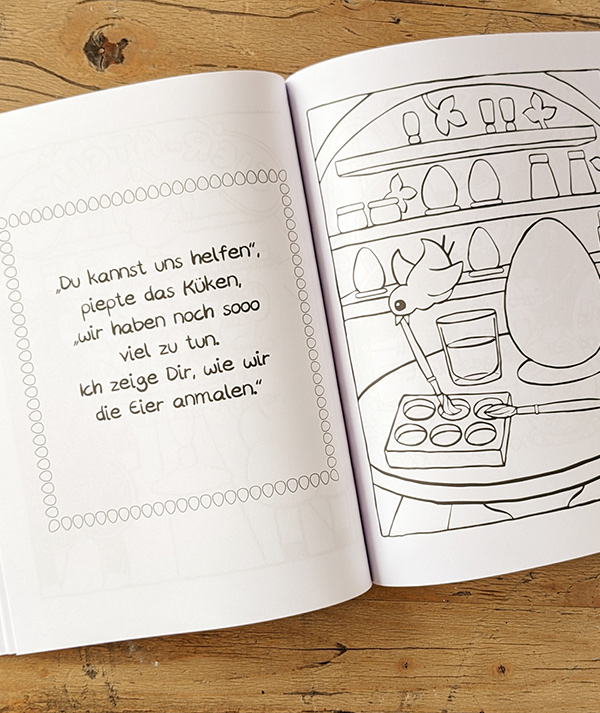 „Du kannst uns helfen“,
piepte das Küken,
„wir haben noch sooo
viel zu tun.
Ich zeige Dir, wie wir
die Eier anmalen.“